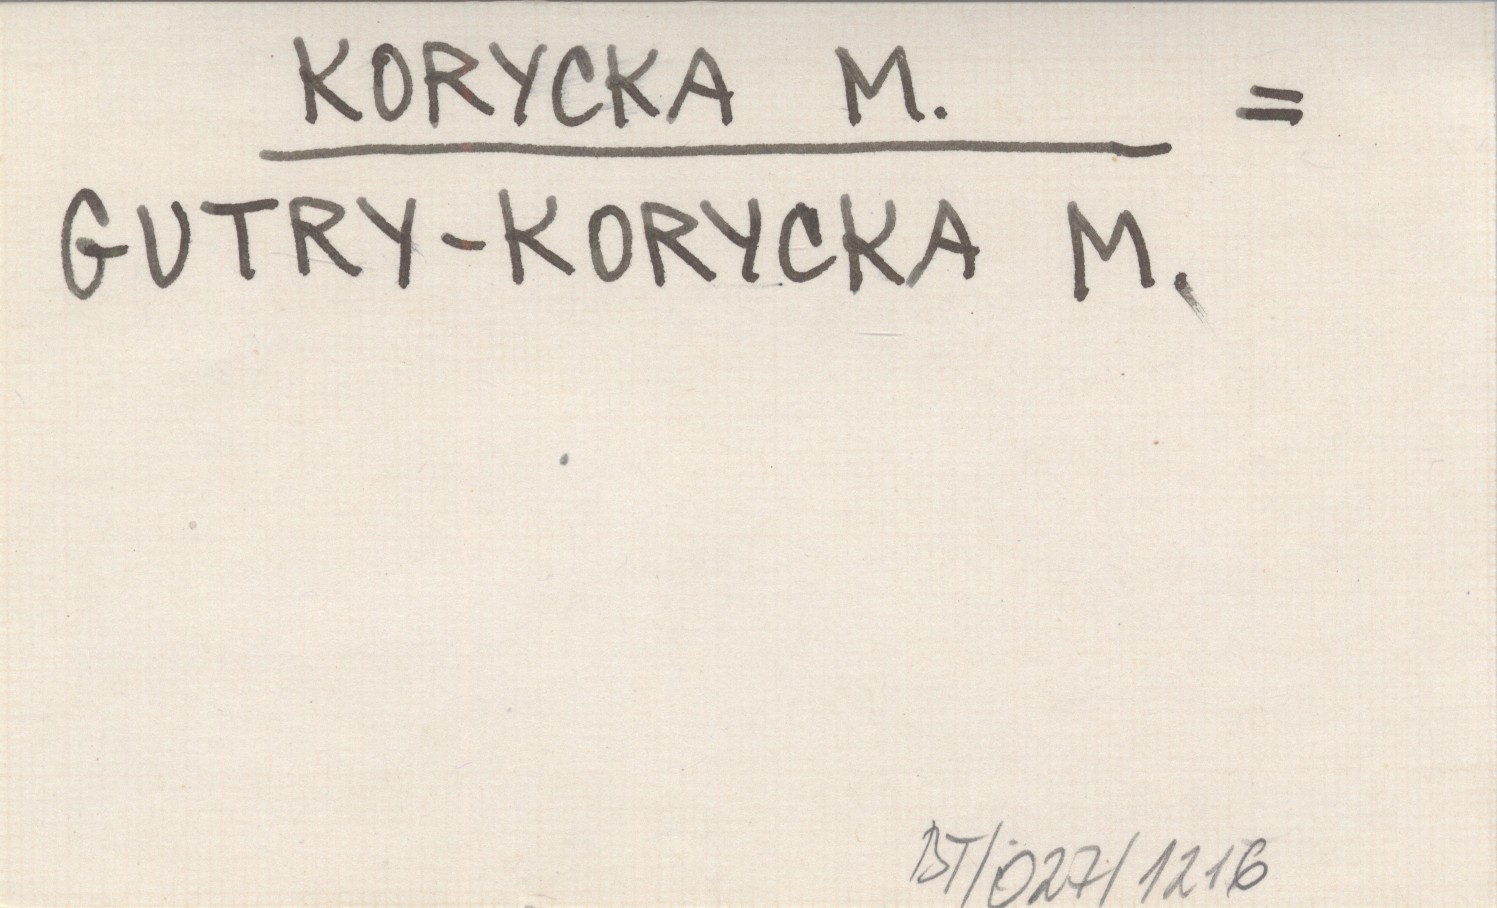 KORYCKA M. =
GUTRY-KORYCKA M.
BT/027/1216